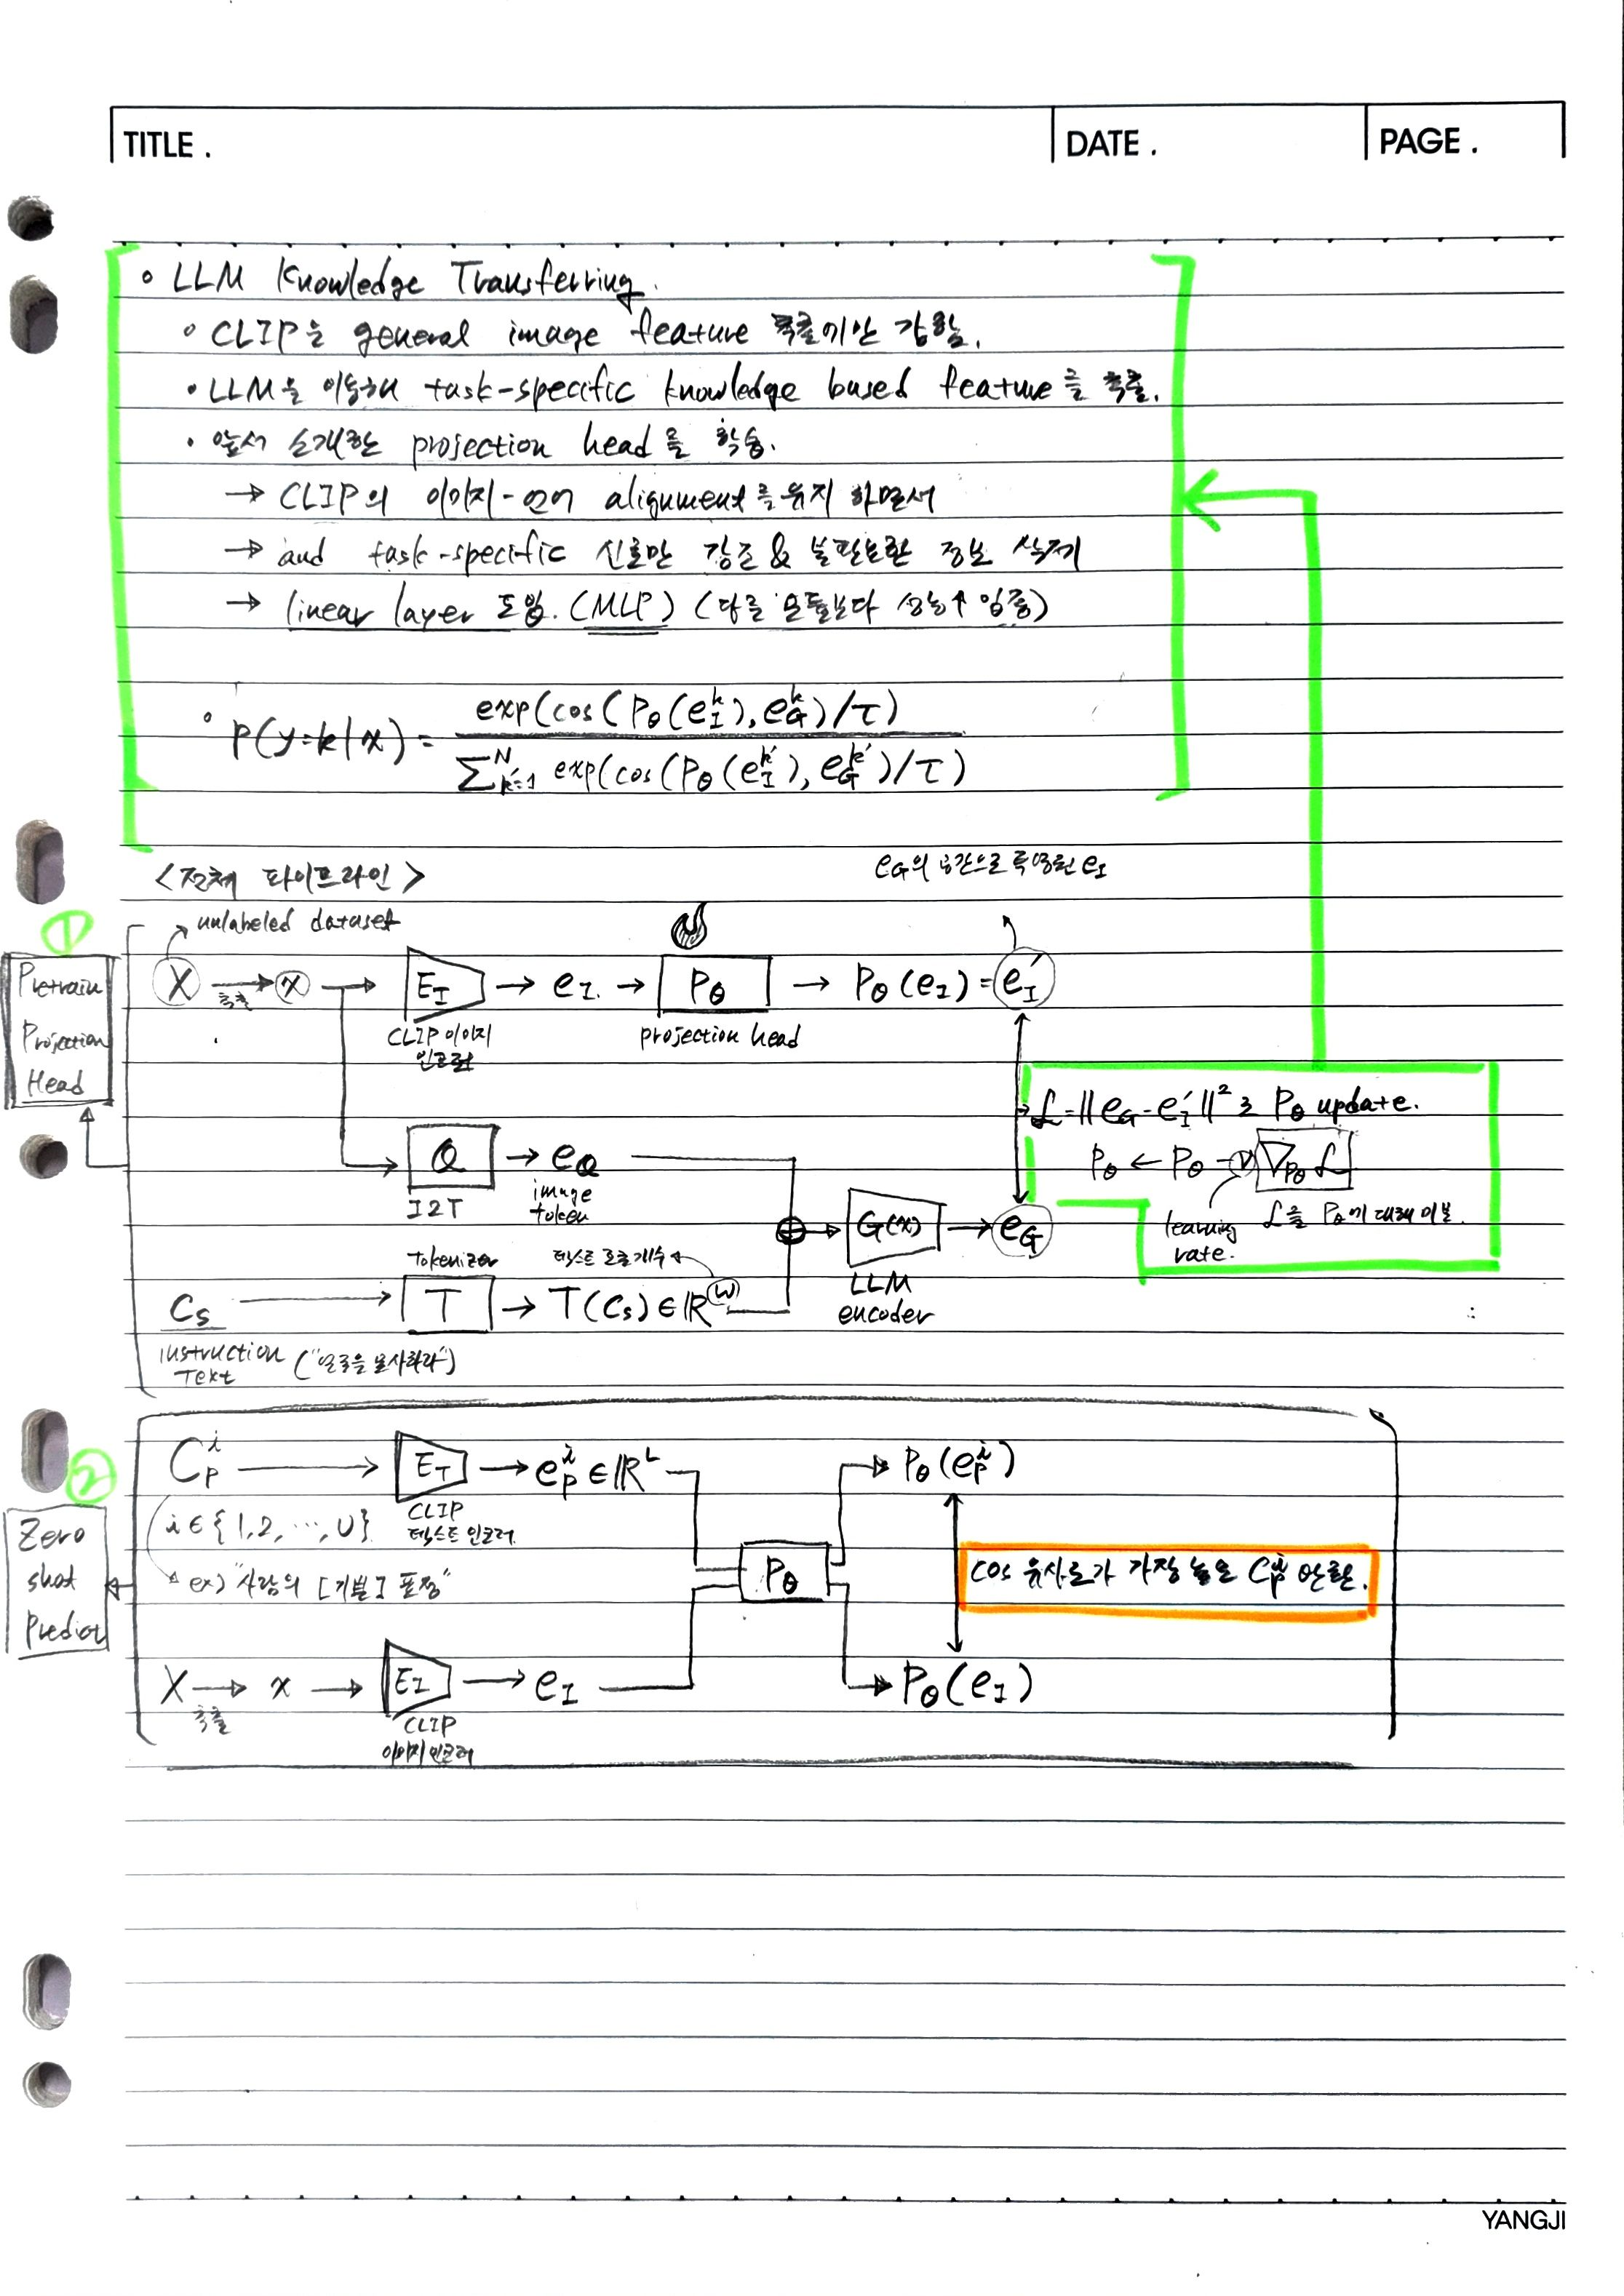 TITLE .
DATE .
PAGE .
◦ LLM Knowledge Transferring.
◦ CLIP은 general image feature 추출에만 강함.
• LLM을 이용해 task-specific knowledge based feature를 추출.
• 앞서 소개한 projection head를 학습.
→ CLIP의 이미지-언어 alignment를 유지 하면서
→ and task-specific 신호만 강조 & 불필요한 정보 삭제
→ linear layer 도입. (MLP) (다른 모듈보다 성능↑ 입증)
◦ P(y=k|x) = exp(cos(Pθ(e_I^k), e_G^k)/τ) / ∑_{k'=1}^N exp(cos(Pθ(e_I^k'), e_G^k')/τ)
<전체 파이프라인>
e_G의 공간으로 투영된 e_I
①
unlabeled dataset
Pretrain
Projection
Head
X → x → E_I → e_I. → Pθ → Pθ(e_I) = e_I'
추출
CLIP 이미지
인코더
projection head
→ L = ||e_G - e_I'||² 로 Pθ update.
Pθ ← Pθ - ν ∇_Pθ L
learning
rate.
L을 Pθ에 대해 미분.
Q → e_Q
I2T
image
token
⊕ → G(x) → e_G
LLM
encoder
Tokenizer
텍스트 토큰 개수
C_s → T → T(C_s) ∈ ℝ^W
instruction
Text
("얼굴을 묘사하라")
②
Zero
shot
Predict
C_p^i → E_T → e_p^i ∈ ℝ^L
→ Pθ(e_p^i)
CLIP
텍스트 인코더.
i ∈ {1,2, ⋯, U}
ex) "사람의 [기쁨] 표정"
Pθ
cos 유사도가 가장 높은 C_p^i 반환.
X → x → E_I → e_I
→ Pθ(e_I)
추출
CLIP
이미지 인코더
YANGJI